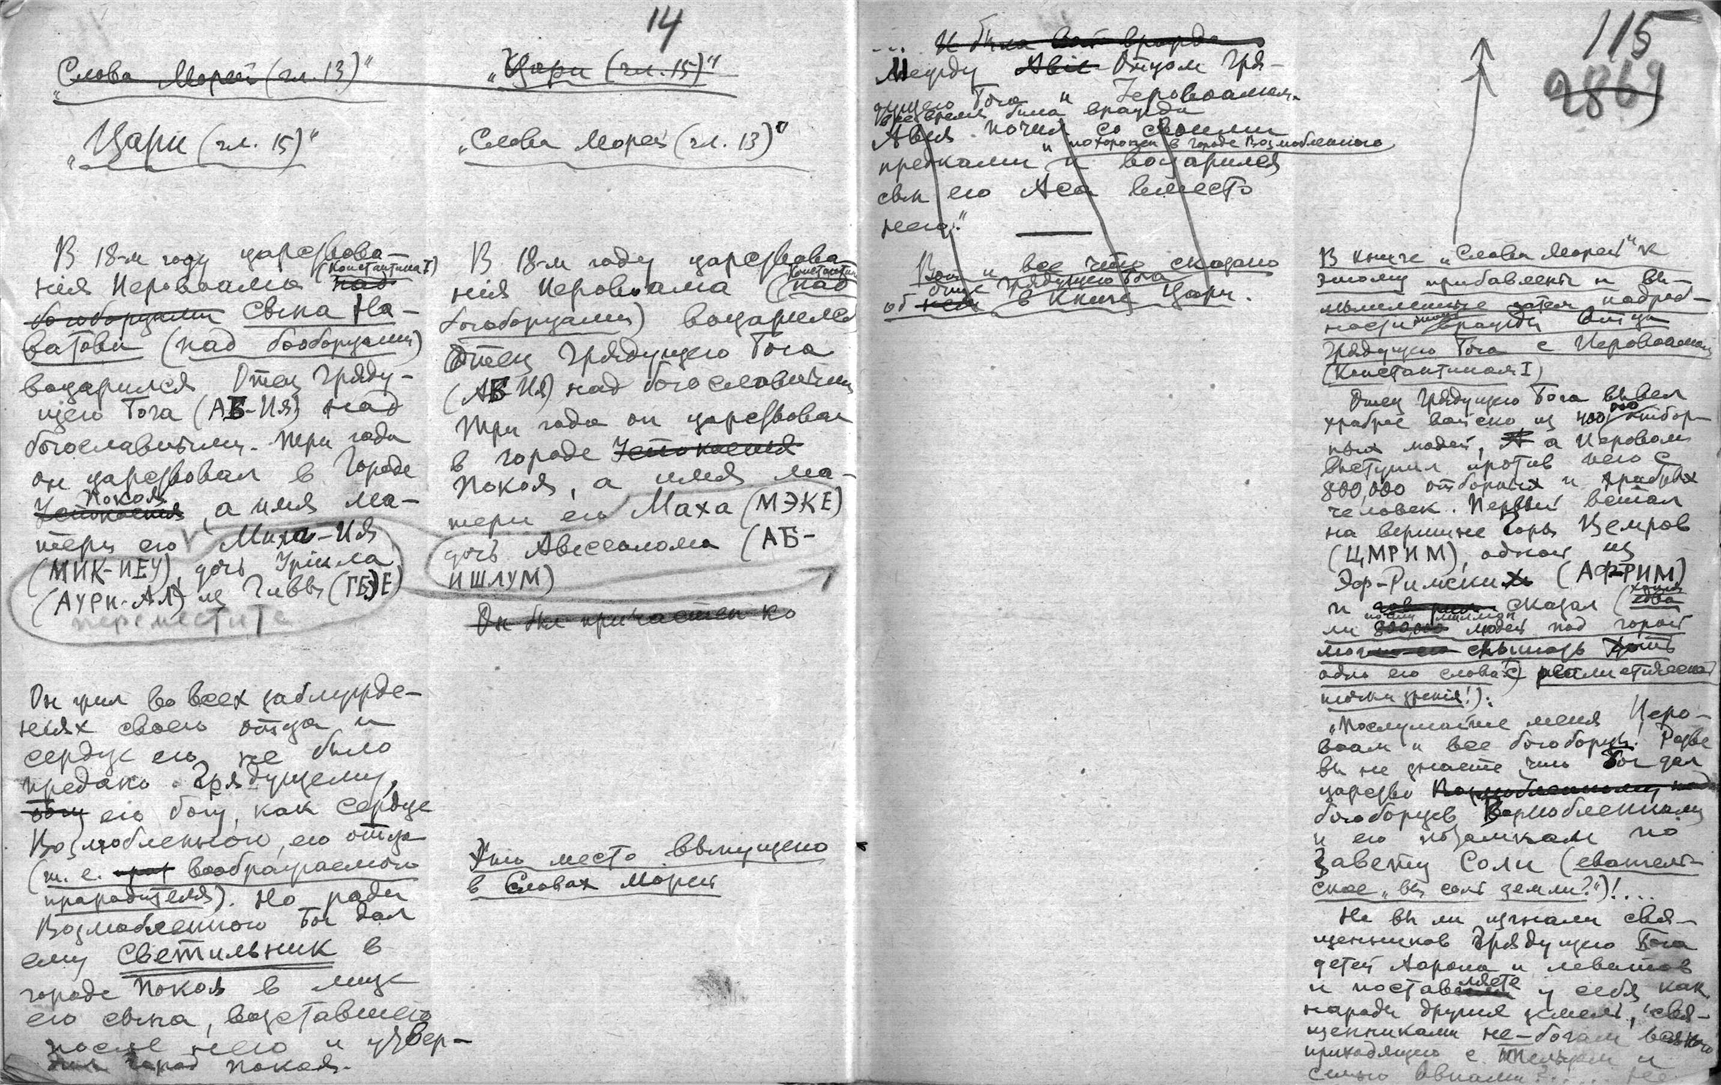 14
„Слова Морей (гл. 13)“
„Цари (гл. 15)“
„Цари (гл. 15)“
„Слова Морей (гл. 13)“
В 18-м году царствова-
ния Иеровоама (Константина I) над
богоборцами сына На-
ватова (над богоборцами)
воцарился Отец Гряду-
щего Бога (АБ-ИЯ) над
богославными. Три года
он царствовал в городе
Успокоения Покоя, а имя ма-
тери его Миха-Ия
(МИК-ИЕУ), дочь Уриила
(АУРИ-АЛ) из Гиввы (ГБЭЕ)
переместить
Он жил во всех заблужде-
ниях своего отца и
сердце его не было
предано Грядущему,
богу его богу, как сердце
Возлюбленного, его отца
(т. е. воображаемого
прародителя). Но ради
Возлюбленного Бог дал
ему светильник в
городе Покоя в лице
его сына, возставшего
после него и утвер-
дил город Покоя.
В 18-м году царствова-
ния Иеровоама (Константин
над
богоборцами) воцарился
Отец Грядущего Бога
(АБ-ИЯ) над богославными
Три года он царствовал
в городе Успокоения
Покоя, а имя ма-
тери его Маха (МЭКЕ)
дочь Авессалома (АБ-
ИШЛУМ)
Он был причастен ко
Это место выпущено
в Словах Морей
... И была вражда
Между Авие Отцом Гря-
дущего Бога и Иеровоамом
все время была вражда
Авия почил со своими
и похоронен в городе Возлюбленного
предками и воцарился
сын его Аса вместо
него.“
Вот и все что сказано
отце Грядущего Бога
об нем в Книге Цари.
115
2869
В книге „Слова Морей“ к
этому прибавлены и вы-
мышленные затем подроб-
ности этой вражды Отца
Грядущего Бога с Иеровоамом
(Константином I)
Отец Грядущего Бога вывел
храброе войско из 400 000 отбор-
ных людей, а Иеровоам
выступил против него с
800,000 отборных и храбрых
человек. Первый встал
на вершине Горы Цемров
(ЦМРИМ), одной из
Эф-Римских (АФ-РИМ)
и говорил сказал (хотя
едва
почти миллион
ли 800,000 людей под горой
могло его слышать хоть
одно его слово с реалистической
точки зрения!):
„Послушайте меня Иеро-
воам и все богоборцы! Разве
вы не знаете что Бог дал
царство Возлюбленному над
богоборцев Возлюбленному
и его потомкам по
Завету Соли (евангель-
ское „вы соль земли?“)!...
Не вы ли изгнали свя-
щенников Грядущего Бога
детей Аарона и левитов
и поставляете у себя как
народы других земель, свя-
щенниками не-богам всякого
приходящего с тельцом и
семью овнами?...